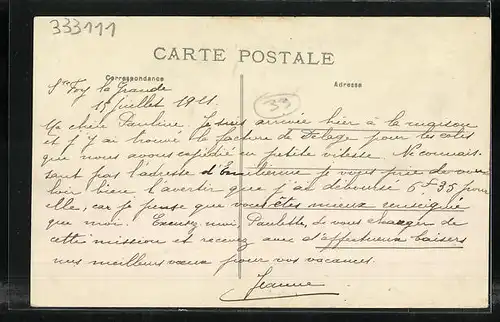 333111
CARTE POSTALE
Correspondance
Adresse
39
Ste Foy la Grande
15 juillet 1921.
Ma chère Pauline Je suis arrivée hier à la maison
et j'y ai trouvé la facture de pour les colis
que nous avons expédié en petite vitesse. Ne connais-
sant pas l'adresse d'Emilienne je vous prie de vou-
loir bien l'avertir que j'ai déboursé 6f35 pour
elle, car je pense que vous êtes mieux renseignée
que moi. Excusez moi, Paulette, de vous charger de
cette mission et recevez avec d'affectueux baisers
mes meilleurs vœux pour vos vacances.
Jeanne